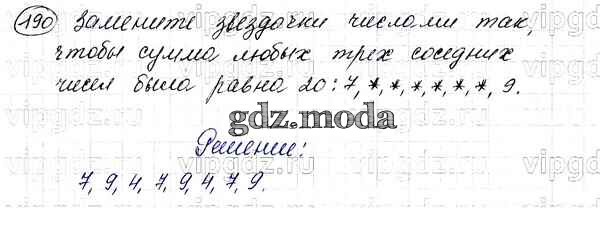 190 Замените звездочки числами так,
чтобы сумма любых трех соседних
чисел была равна 20: 7, *, *, *, *, *, *, 9.
gdz.moda
Решение:
7, 9, 4, 7, 9, 4, 7, 9.